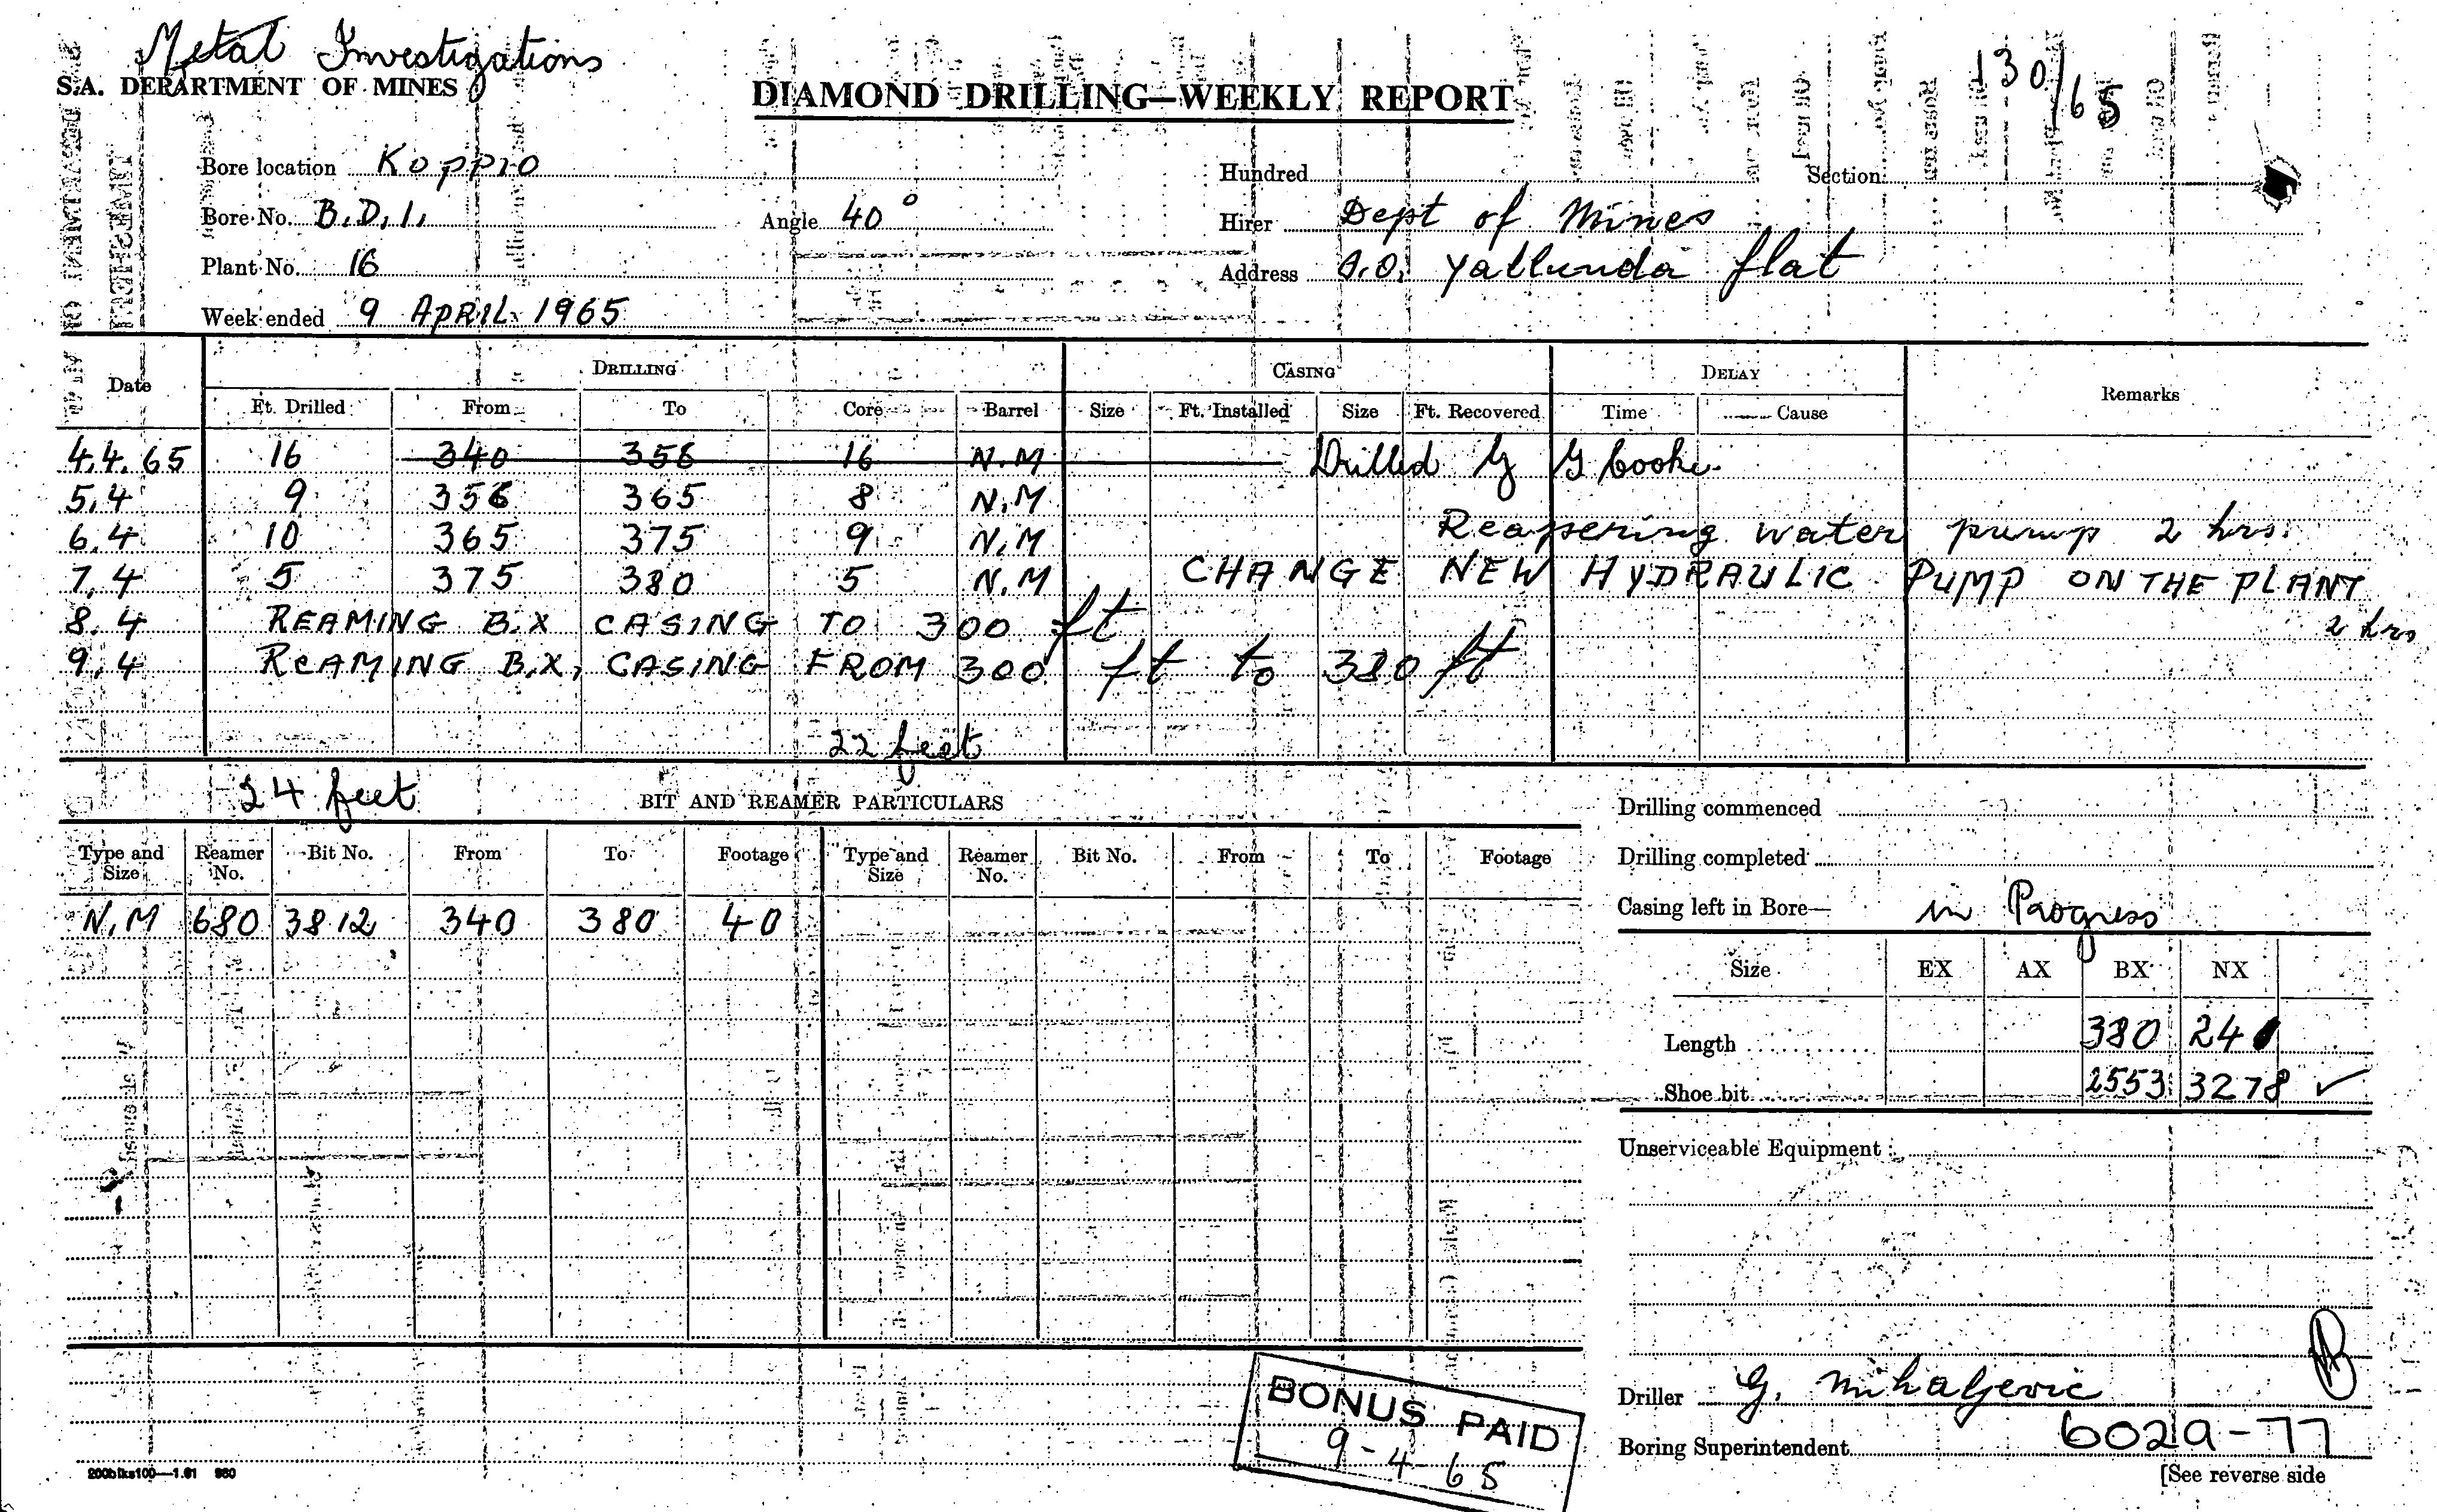 Metal Investigations
S.A. DEPARTMENT OF MINES
DIAMOND DRILLING—WEEKLY REPORT
130/65
Bore location Koppio
Hundred Section
Bore No. B.D.1. Angle 40°
Hirer Dept of Mines
Plant No. 16
Address P.O. Yallunda flat
Week ended 9 APRIL 1965
Date DRILLING CASING DELAY Remarks
Ft. Drilled From To Core Barrel Size Ft. Installed Size Ft. Recovered Time Cause
4.4.65 16 340 356 16 N.M Drilled by G Cooke
5.4 9 356 365 8 N.M
6.4 10 365 375 9 N.M Reapering water pump 2 hrs.
7.4 5 375 380 5 N.M CHANGE NEW HYDRAULIC PUMP ON THE PLANT
2 hrs
8.4 REAMING B.X CASING TO 300 ft
9.4 REAMING B.X, CASING FROM 300 ft to 380 ft
22 feet
24 feet
BIT AND REAMER PARTICULARS
Type and Size Reamer No. Bit No. From To Footage Type and Size Reamer No. Bit No. From To Footage
N.M 680 3812 340 380 40
Drilling commenced
Drilling completed
Casing left in Bore— in Progress
Size EX AX BX NX
Length 380 240
Shoe bit 2553 3278 ✓
Unserviceable Equipment
BONUS PAID
9-4-65
Driller G. Mihaljevic
Boring Superintendent
6029-77
200bks100—1.61 980
[See reverse side